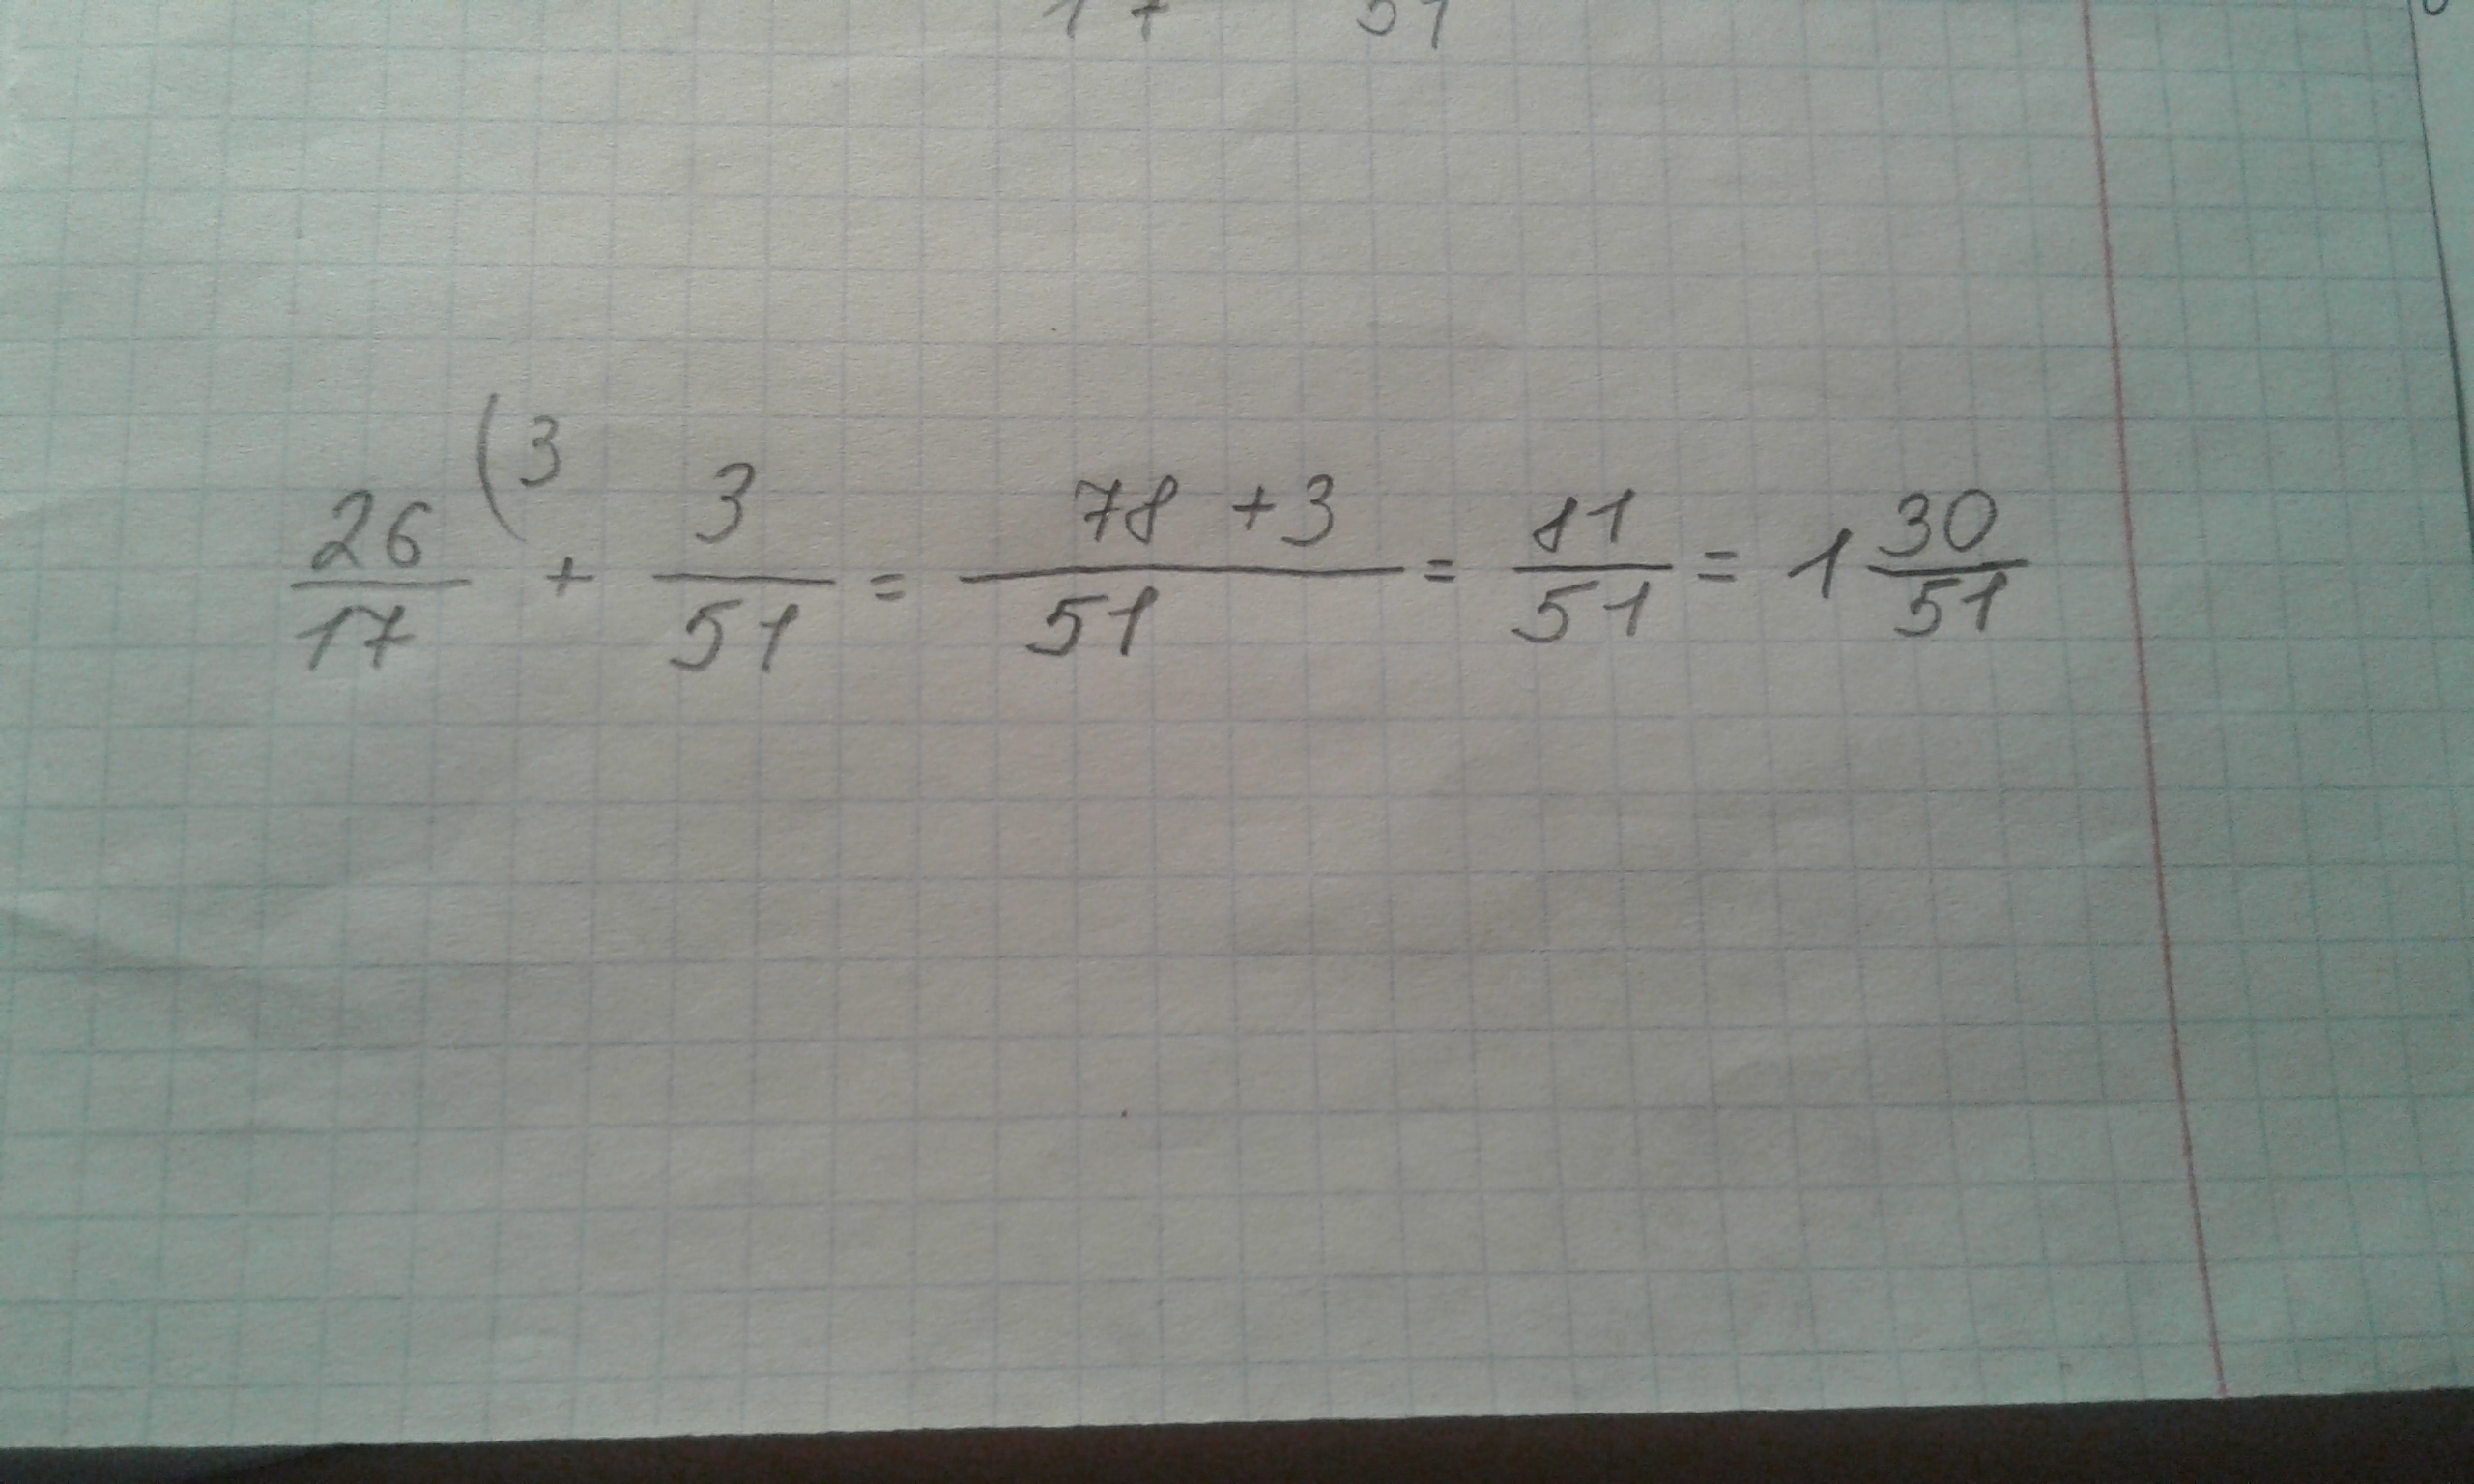 26/17 (3 + 3/51 = 78 + 3/51 = 81/51 = 1 30/51